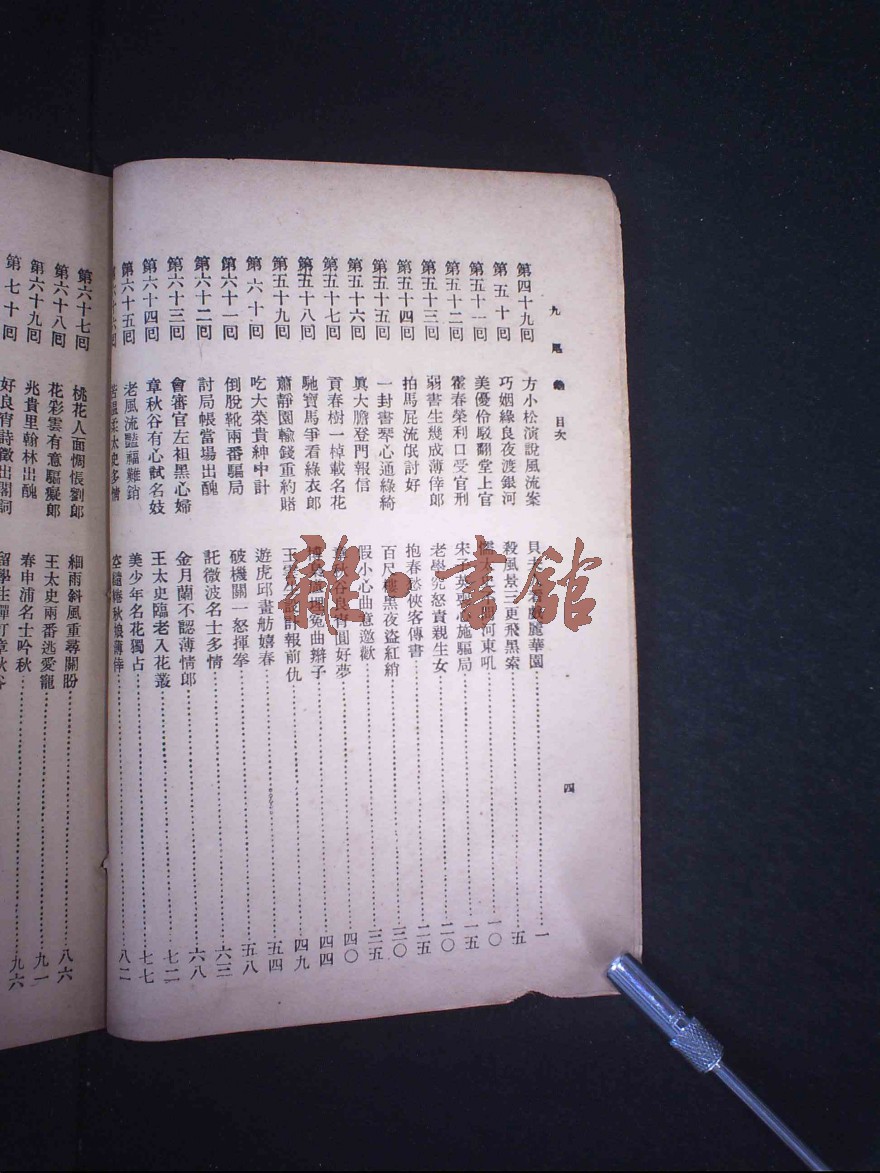 九尾龜 目次 四
第四十九回 方小松演說風流案 貝夫人看戲麗華園 一
第五十回 巧姻緣良夜渡銀河 殺風景三更飛黑索 五
第五十一回 美優伶駁翻堂上官 太史 河東吼 一〇
第五十二回 霍春榮利口受官刑 宋子英 心施騙局 一五
第五十三回 弱書生幾成薄倖郎 老學究怒責親生女 二〇
第五十四回 拍馬屁流氓討好 抱春愁俠客傳書 二五
第五十五回 一封書琴心通綠綺 百尺樓黑夜盜紅綃 三〇
第五十六回 眞大膽登門報信 假小心曲意邀歡 三五
第五十七回 貢春樹一棹載名花 章秋谷良宵圓好夢 四〇
第五十八回 馳寶馬爭看綠衣郎 冤曲辮子 四四
第五十九回 蕭靜園輸錢重約賭 王雲生設計報前仇 四九
第六十回 吃大菜貴紳中計 遊虎邱畫舫嬉春 五四
第六十一回 倒脫靴兩番騙局 破機關一怒揮拳 五八
第六十二回 討局帳當場出醜 託微波名士多情 六三
第六十三回 會審官左袒黑心婦 金月蘭不認薄情郎 六八
第六十四回 章秋谷有心試名妓 王太史臨老入花叢 七二
第六十五回 老風流豔福難銷 美少年名花獨占 七七
第六十六回 苦溫柔太史多情 秋娘薄倖 八二
第六十七回 桃花人面惆悵劉郎 細雨斜風重尋關盼 八六
第六十八回 花彩雲有意驅癡郎 王太史兩番逃愛寵 九一
第六十九回 兆貴里翰林出醜 春申浦名士吟秋 九六
第七十回 好良宵詩徵出閣詞 留學生彈打章秋谷
雜·書館